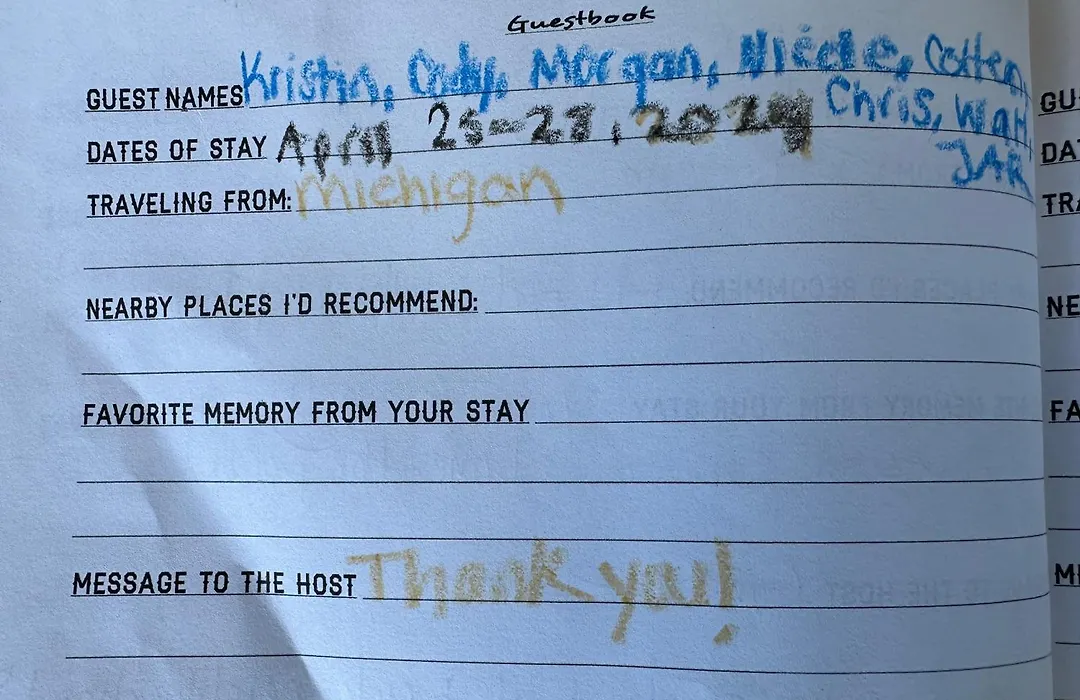 Guestbook
GUEST NAMES Kristin, Cody, Morgan, Nicole, Colten,
Chris, Matt
DATES OF STAY April 25-27, 2024
JAR
TRAVELING FROM: michigan
NEARBY PLACES I'D RECOMMEND:
FAVORITE MEMORY FROM YOUR STAY
MESSAGE TO THE HOST Thank you!
GU
DA
TRA
NE
FA